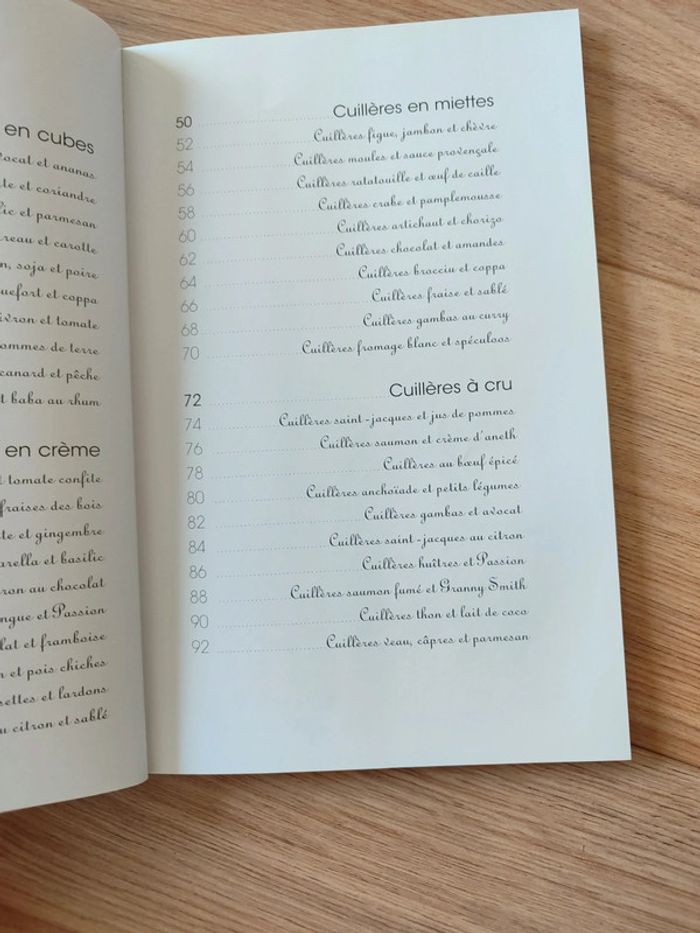 en cubes
et ananas
et coriandre
et parmesan
et carotte
soja et poire
et coppa
et tomate
de terre
canard et pêche
baba au rhum
en crème
tomate confite
fraises des bois
et gingembre
et basilic
au chocolat
et Passion
et framboise
et pois chiches
et lardons
citron et sablé
50 Cuillères en miettes
52 Cuillères figue, jambon et chèvre
54 Cuillères moules et sauce provençale
56 Cuillères ratatouille et œuf de caille
58 Cuillères crabe et pamplemousse
60 Cuillères artichaut et chorizo
62 Cuillères chocolat et amandes
64 Cuillères brocciu et coppa
66 Cuillères fraise et sablé
68 Cuillères gambas au curry
70 Cuillères fromage blanc et spéculoos
72 Cuillères à cru
74 Cuillères saint-jacques et jus de pommes
76 Cuillères saumon et crème d'aneth
78 Cuillères au bœuf épicé
80 Cuillères anchoïade et petits légumes
82 Cuillères gambas et avocat
84 Cuillères saint-jacques au citron
86 Cuillères huîtres et Passion
88 Cuillères saumon fumé et Granny Smith
90 Cuillères thon et lait de coco
92 Cuillères veau, câpres et parmesan